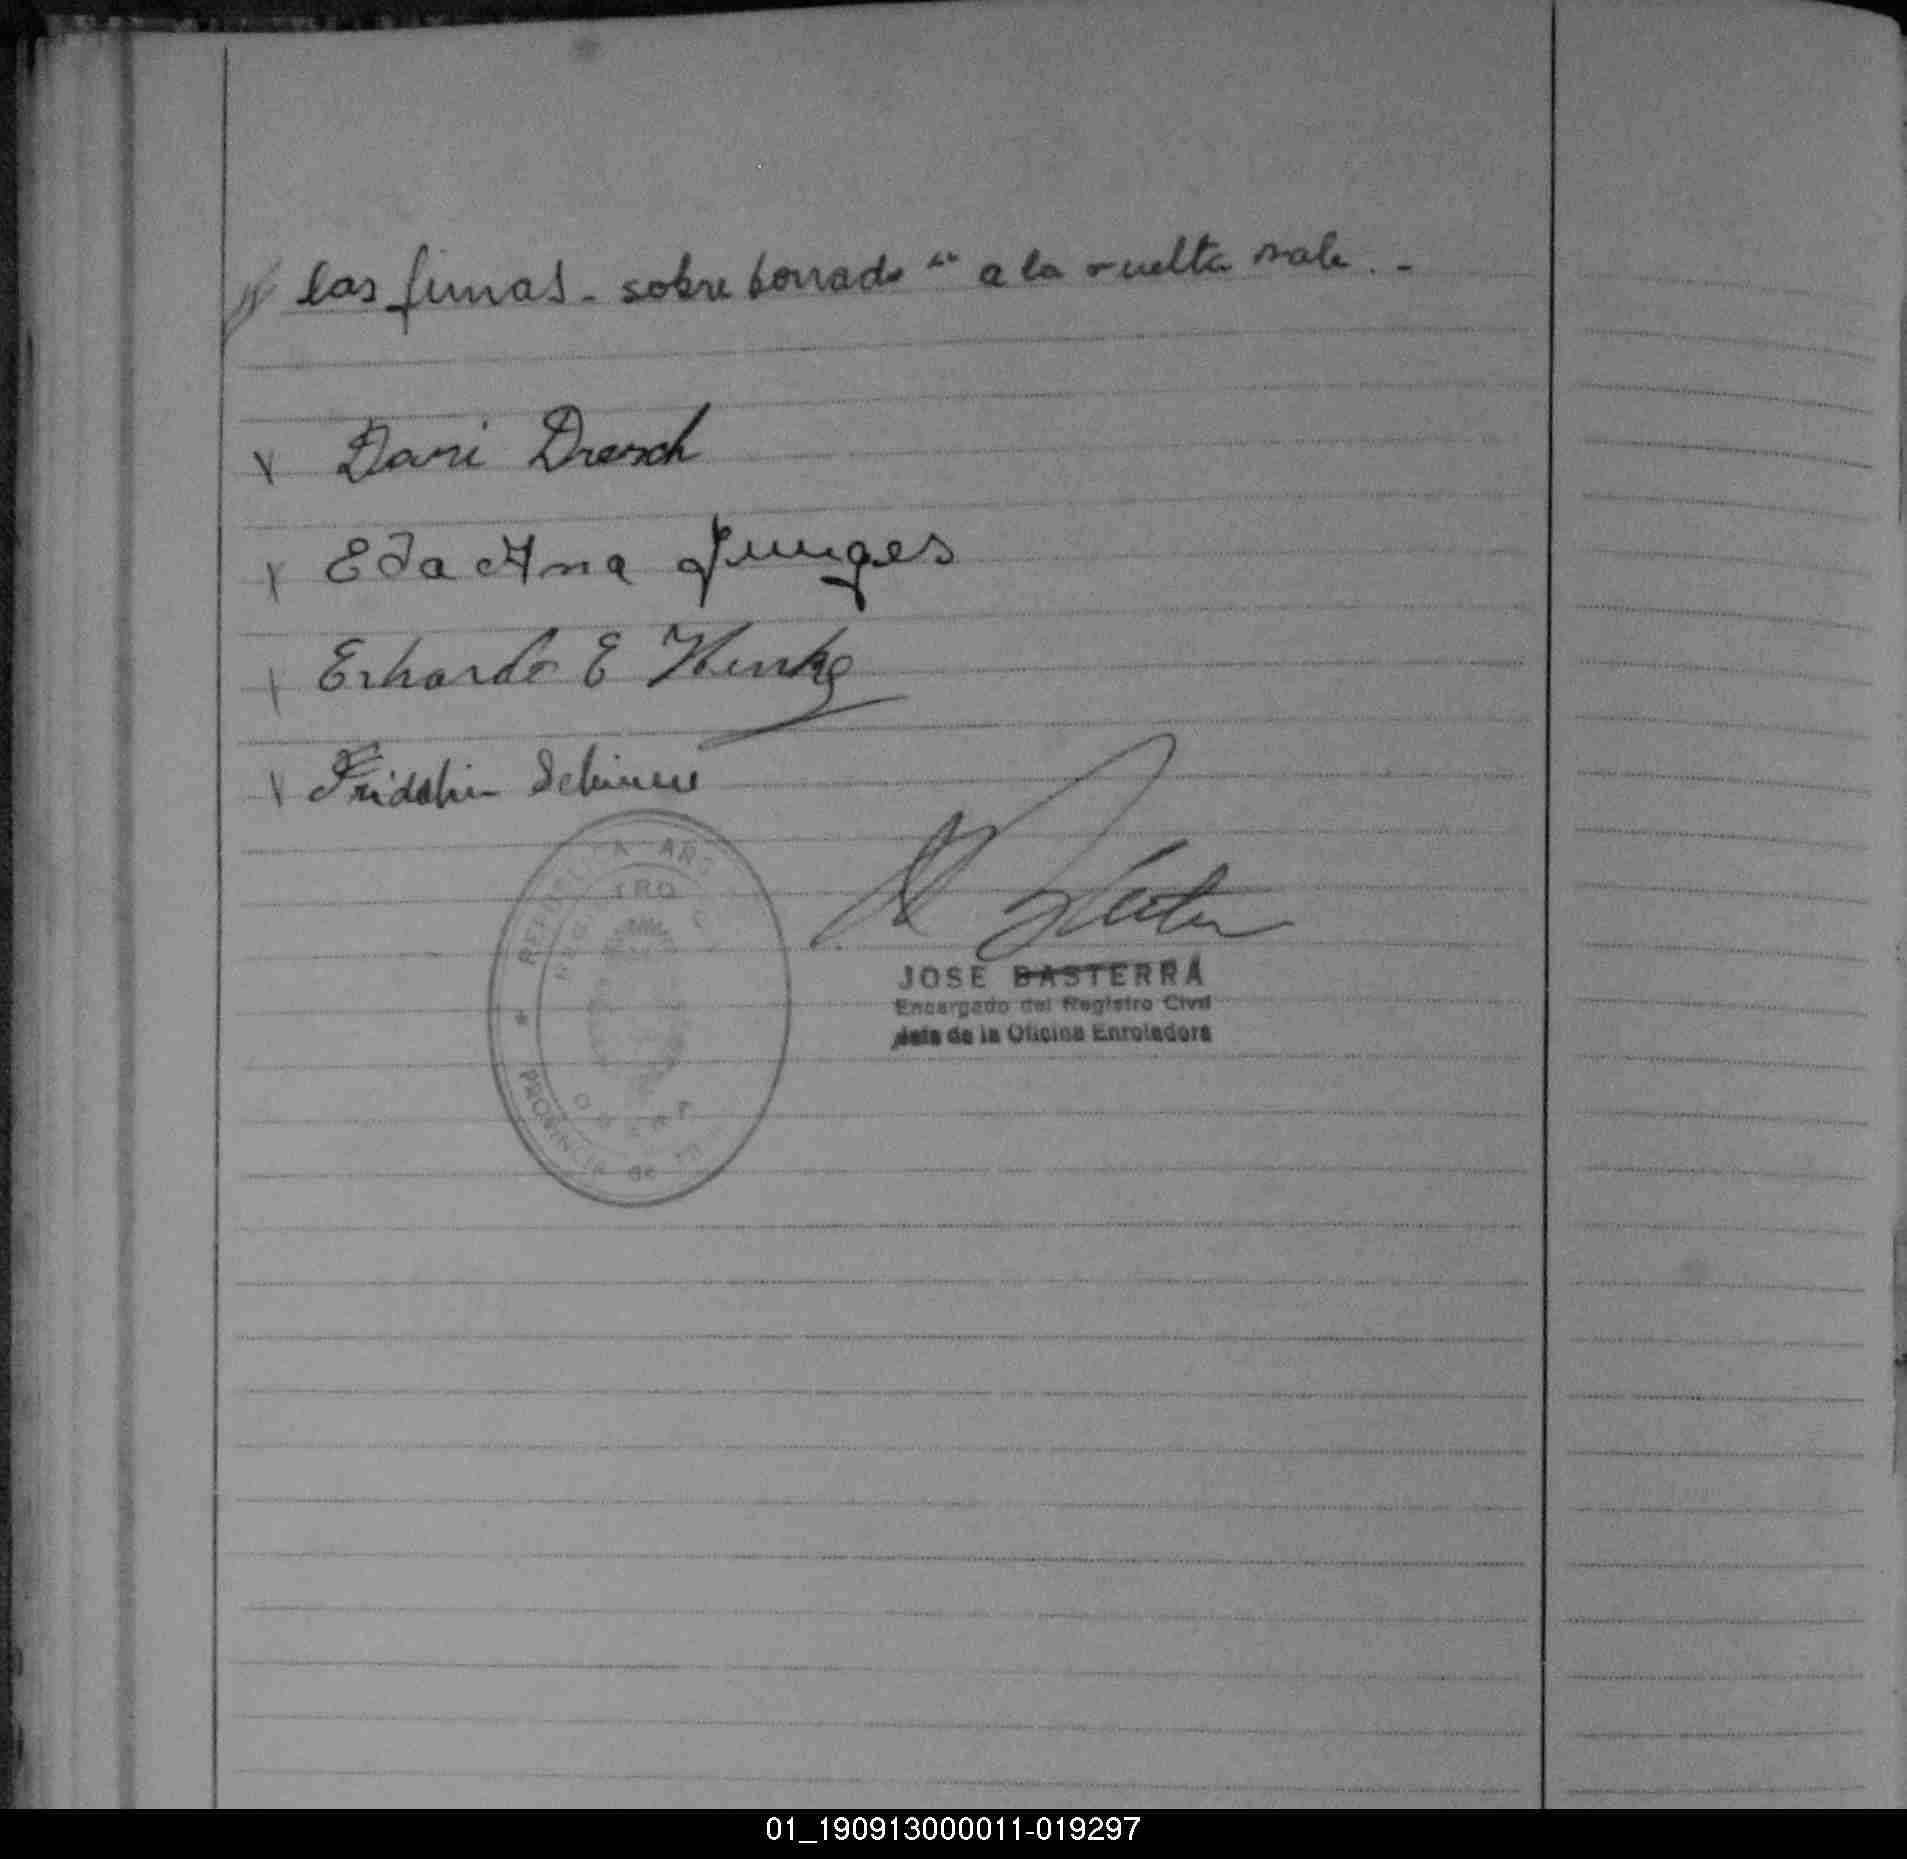 // las firmas - sobre borrado " a la vuelta vale . -
Dari Dresch
Eda Ana Junges
Erhardo E
Fridolin
REPUBLICA ARG
PROVINCIA DE
JOSE BASTERRA
Encargado del Registro Civil
Jefe de la Oficina Enroladora
01_190913000011-019297